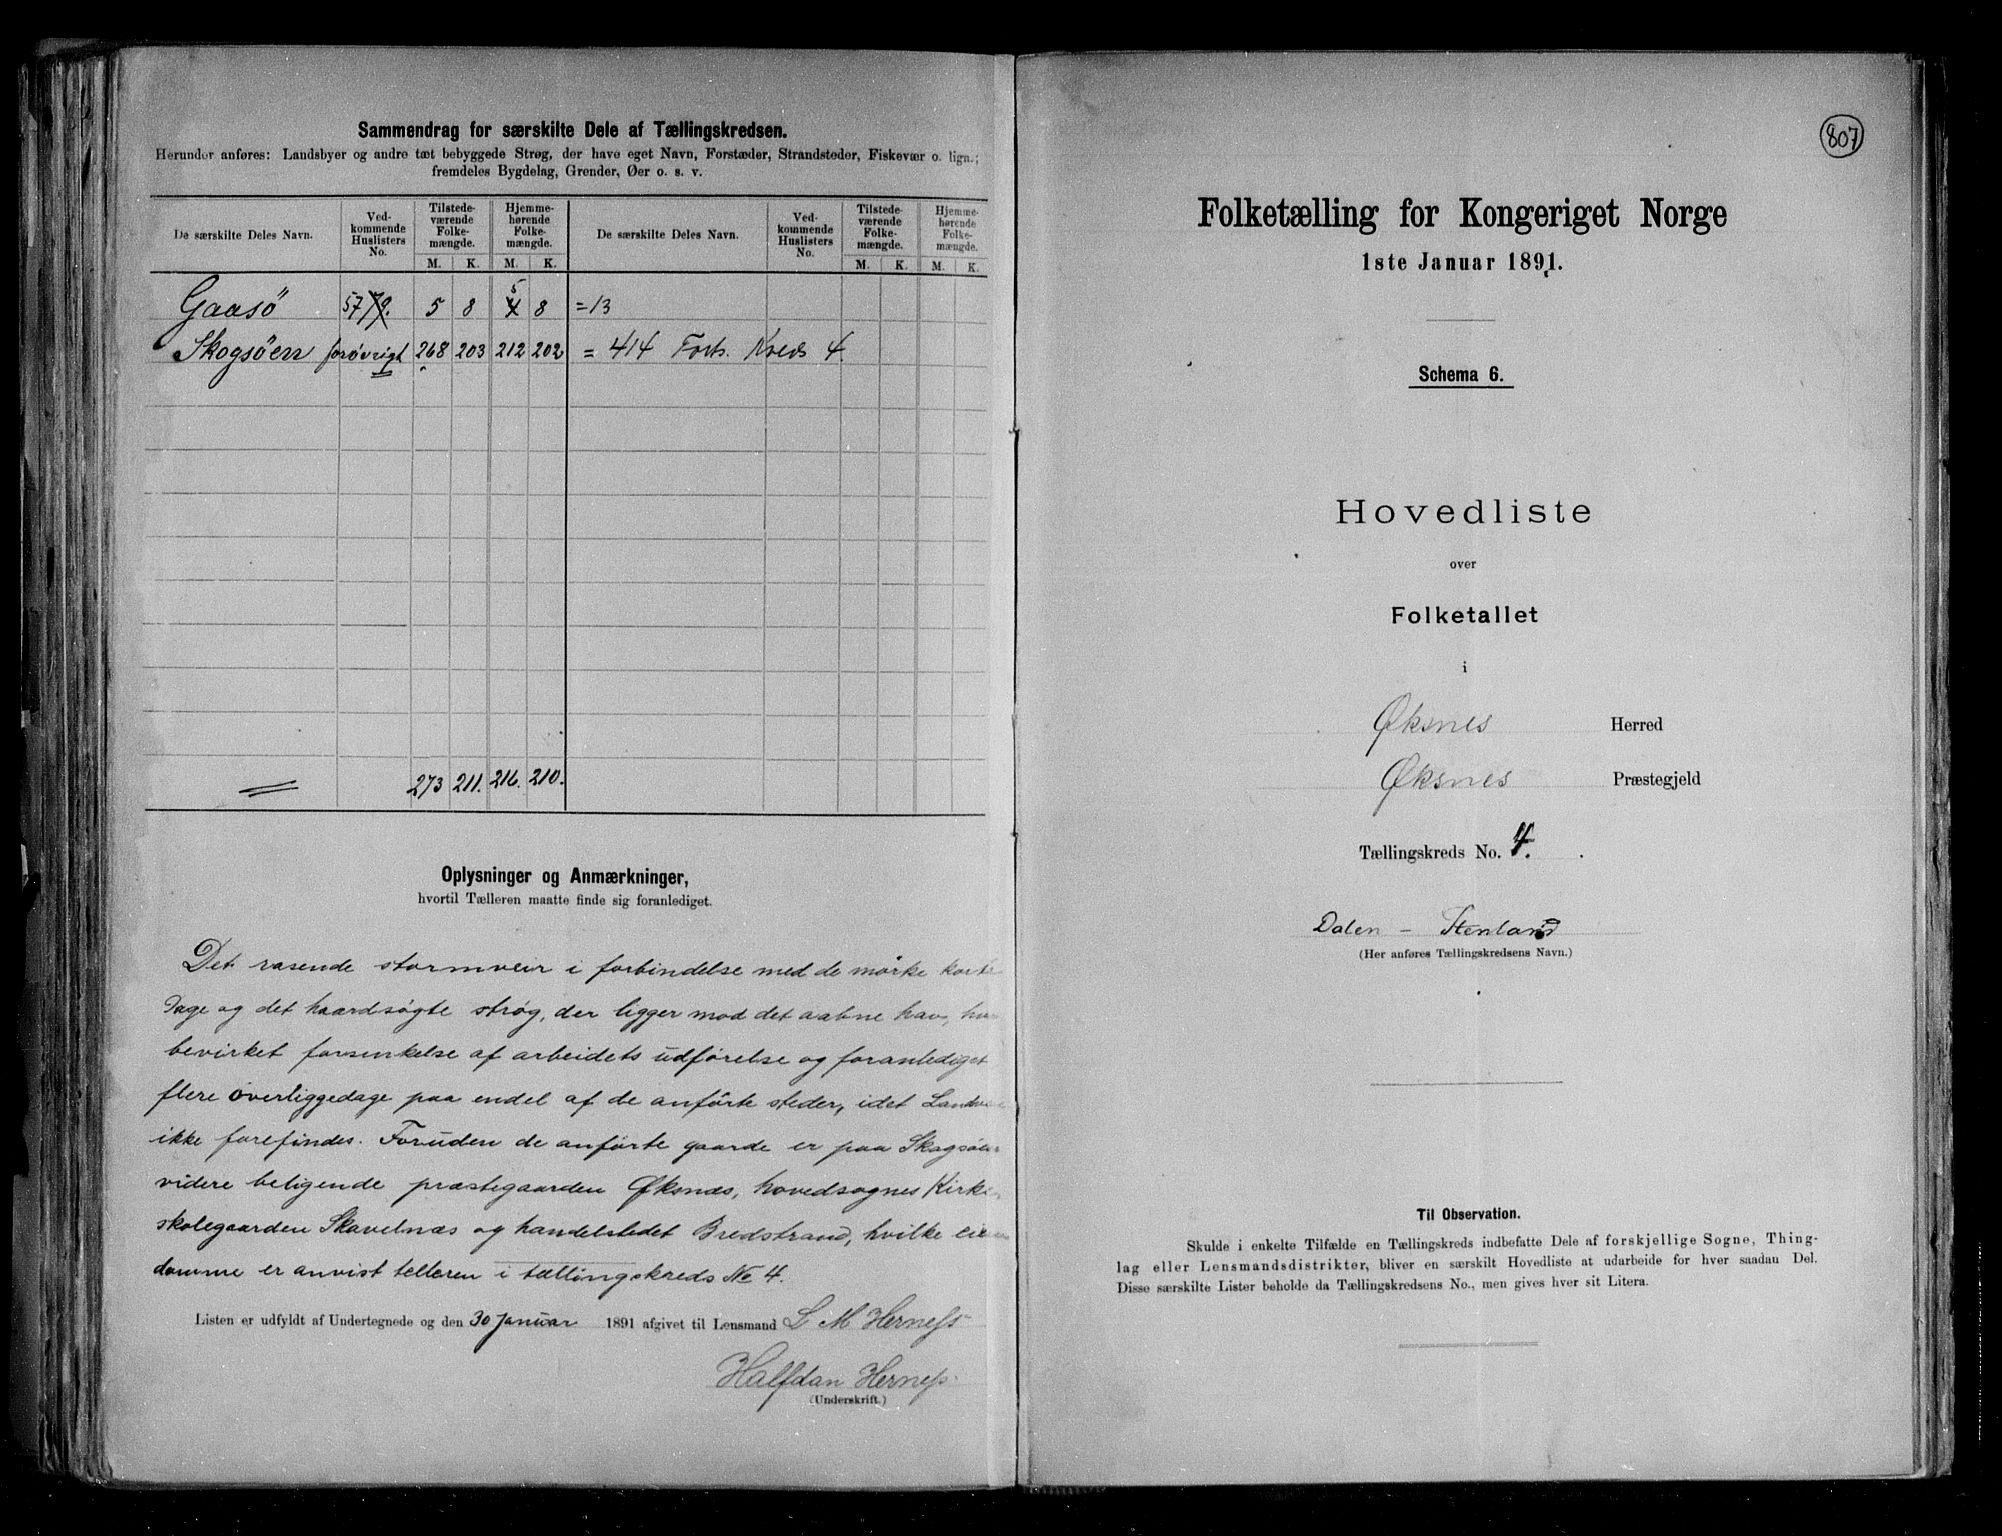 Sammendrag for særskilte Dele af Tællingskredsen.
Herunder anføres: Landsbyer og andre tæt bebyggede Strøg, der have eget Navn, Forstæder, Strandsteder, Fiskevær o. lign.;
fremdeles Bygdelag, Grender, Øer o. s. v.
De særskilte Deles Navn. Ved-kommende Huslisters No. Tilstede-værende Folke-mængde. Hjemme-hørende Folke-mængde. De særskilte Deles Navn. Ved-kommende Huslisters No. Tilstede-værende Folke-mængde. Hjemme-hørende Folke-mængde.
M. K. M. K. M. K. M. K.
Gaasø 57 5 8 5 8 =13
Skogsøen forøvrigt 268 203 212 202 = 414 Forts. Kreds 4.
273 211. 216. 210.
Oplysninger og Anmærkninger,
hvortil Tælleren maatte finde sig foranlediget.
Det rasende stormveir i forbindelse med de mørke korte
Dage og det haardsøgte strøg, der ligger mod det aabne hav,
bevirket forsinkelse af arbeidets udførelse og foranlediget
flere overliggedage paa endel af de anførte steder, idet
ikke forefindes. Foruden de anførte gaarde er paa Skogsøen
videre beligende præstegaarden Øksnæs, hovedsognes Kirke
skolegaarden Skavelnæs og handelstedet Bredstrand, hvilke
domme er anvist telleren i tællingskreds No 4.
Listen er udfyldt af Undertegnede og den 30 Januar 1891 afgivet til Lensmand L M Herness
Halfdan Herness
(Underskrift.)
807
Folketælling for Kongeriget Norge
1ste Januar 1891.
Schema 6.
Hovedliste
over
Folketallet
i
Øksnes Herred
Øksnes Præstegjeld
Tællingskreds No. 4.
Dalen - Stenland
(Her anføres Tællingskredsens Navn.)
Til Observation.
Skulde i enkelte Tilfælde en Tællingskreds indbefatte Dele af forskjellige Sogne, Thing-
lag eller Lensmandsdistrikter, bliver en særskilt Hovedliste at udarbeide for hver saadan Del.
Disse særskilte Lister beholde da Tællingskredsens No., men gives hver sit Litera.